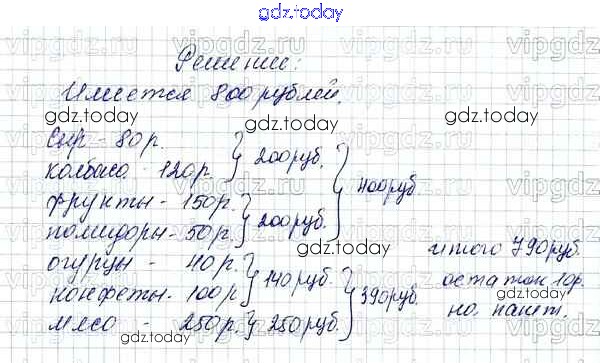 gdz.today
Решение:
Имеется 800 рублей.
Сыр - 80 р.
колбаса - 120 р. } 200 руб.
фрукты - 150 р.
помидоры - 50 р. } 200 руб. } 400 руб.
огурцы - 40 р.
конфеты - 100 р } 140 руб.
мясо - 250 р. } 250 руб. } 390 руб.
итого 790 руб.
остаток 10 р.
на пакет.
gdz.today
vipgdz.ru